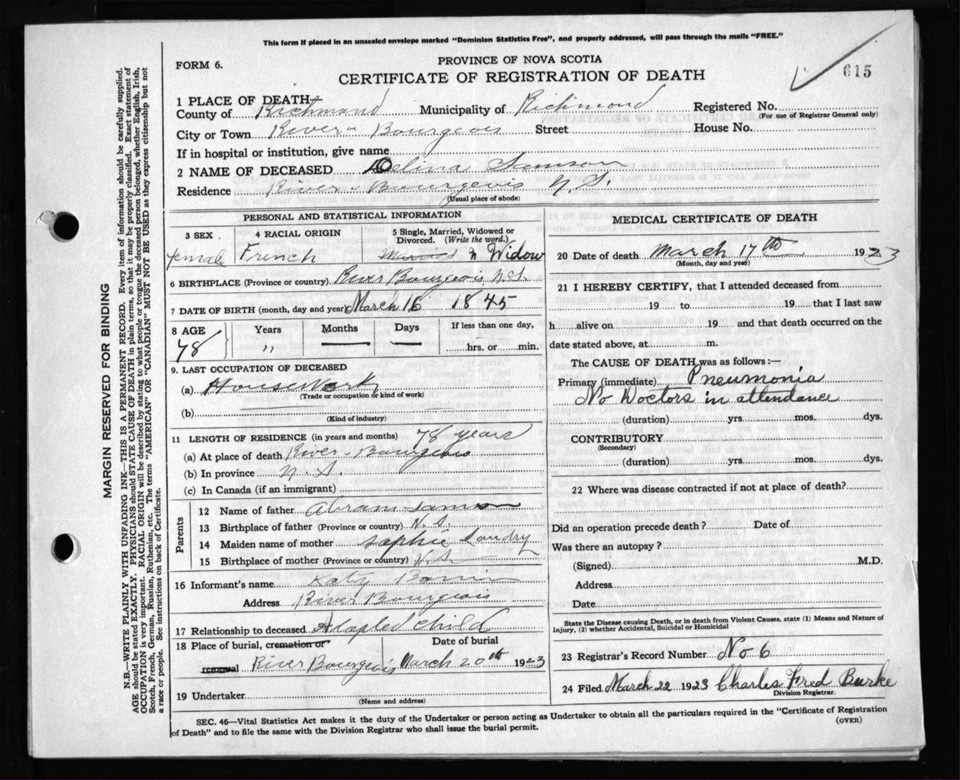 This form if placed in an unsealed envelope marked "Dominion Statistics Free", and properly addressed, will pass through the mails "FREE."
FORM 6.
PROVINCE OF NOVA SCOTIA
615
CERTIFICATE OF REGISTRATION OF DEATH
1 PLACE OF DEATH
County of Richmond Municipality of Richmond Registered No.
(For use of Registrar General only)
City or Town River-Bourgeois Street House No.
If in hospital or institution, give name
2 NAME OF DECEASED Delina Samson
Residence River-Bourgeois N.S.
(Usual place of abode)
PERSONAL AND STATISTICAL INFORMATION
3 SEX 4 RACIAL ORIGIN 5 Single, Married, Widowed or Divorced. (Write the word.)
female French Widow
6 BIRTHPLACE (Province or country) River Bourgeois N.S.
7 DATE OF BIRTH (month, day and year) March 16 1845
8 AGE Years Months Days If less than one day,
78 " — — hrs. or min.
9. LAST OCCUPATION OF DECEASED
(a) Housework
(Trade or occupation or kind of work)
(b)
(Kind of industry)
11 LENGTH OF RESIDENCE (in years and months) 78 years
(a) At place of death River-Bourgeois
(b) In province N.S.
(c) In Canada (if an immigrant)
Parents
12 Name of father Abram Samson
13 Birthplace of father (Province or country) N.S.
14 Maiden name of mother Sophie Landry
15 Birthplace of mother (Province or country) N.S.
16 Informant's name Katy
Address River Bourgeois
17 Relationship to deceased Adopted child
18 Place of burial, cremation or Date of burial
removal River Bourgeois March 20th 1923
19 Undertaker
(Name and address)
MEDICAL CERTIFICATE OF DEATH
20 Date of death March 17th 1923
(Month, day and year)
21 I HEREBY CERTIFY, that I attended deceased from
19 to 19 that I last saw
h alive on 19 and that death occurred on the
date stated above, at m.
The CAUSE OF DEATH was as follows:—
Primary (immediate) Pneumonia
No Doctors in attendance
(duration) yrs. mos. dys.
CONTRIBUTORY
(Secondary)
(duration) yrs. mos. dys.
22 Where was disease contracted if not at place of death?
Did an operation precede death? Date of
Was there an autopsy?
(Signed) M.D.
Address
Date
State the Disease causing Death, or in death from Violent Causes, state (1) Means and Nature of
Injury, (2) whether Accidental, Suicidal or Homicidal
23 Registrar's Record Number No 6
24 Filed March 22 1923 Charles Fred Burke
Division Registrar.
SEC. 46—Vital Statistics Act makes it the duty of the Undertaker or person acting as Undertaker to obtain all the particulars required in the "Certificate of Registration
of Death" and to file the same with the Division Registrar who shall issue the burial permit.
(OVER)
MARGIN RESERVED FOR BINDING
N.B.—WRITE PLAINLY WITH UNFADING INK—THIS IS A PERMANENT RECORD. Every item of information should be carefully supplied.
AGE should be stated EXACTLY. PHYSICIANS should STATE CAUSE OF DEATH in plain terms, so that it may be properly classified. Exact statement of
OCCUPATION is very important. RACIAL ORIGIN will be described by stating to what people or tongue the deceased person belonged, whether English, Irish,
Scotch, French, German, Russian, Ruthenian, etc. The terms "AMERICAN" OR "CANADIAN" MUST NOT BE USED as they express citizenship but not
a race or people. See instructions on back of Certificate.